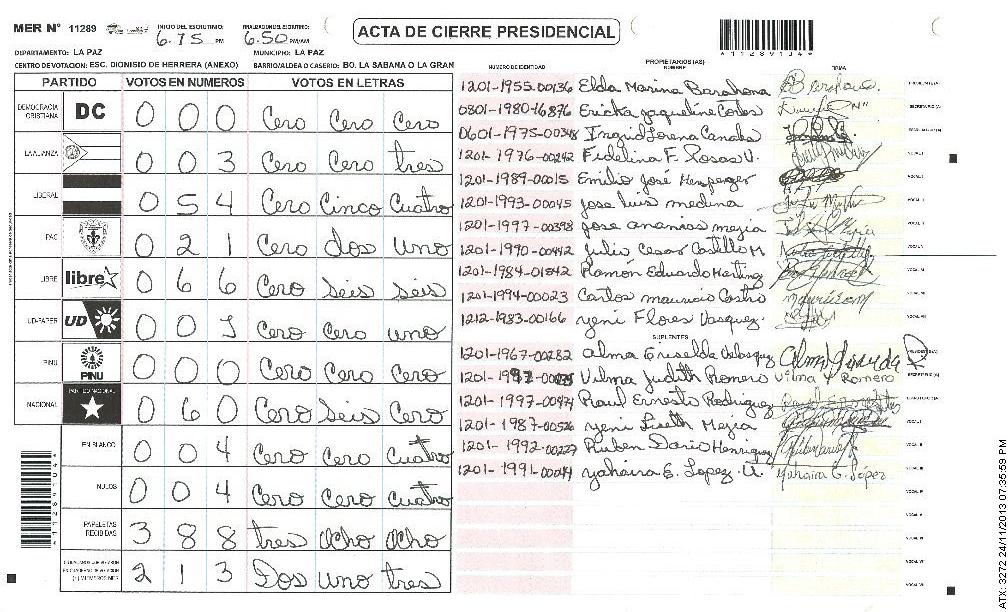 MER Nº 11289 INICIO DEL ESCRUTINIO: 6.15 PM FINALIZACION DEL ESCRUTINIO: 6.50 PM/AM
ACTA DE CIERRE PRESIDENCIAL
11289134
DEPARTAMENTO: LA PAZ MUNICIPIO: LA PAZ
CENTRO DE VOTACION: ESC. DIONISIO DE HERRERA (ANEXO) BARRIO/ALDEA O CASERIO: BO. LA SABANA O LA GRAN
PARTIDO VOTOS EN NUMEROS VOTOS EN LETRAS
DEMOCRACIA CRISTIANA DC 0 0 0 Cero Cero Cero
LA ALIANZA 0 0 3 Cero Cero tres
LIBERAL 0 5 4 Cero Cinco Cuatro
PAC 0 2 1 Cero dos uno
LIBRE libre 0 6 6 Cero Seis Seis
UD-FAPER UD 0 0 1 Cero Cero uno
PINU PINU 0 0 0 Cero Cero Cero
NACIONAL PARTIDO NACIONAL 0 6 0 Cero Seis Cero
EN BLANCO 0 0 4 Cero Cero Cuatro
NULOS 0 0 4 Cero Cero Cuatro
PAPELETAS RECIBIDAS 3 8 8 tres Ocho Ocho
2 1 3 Dos uno tres
NUMERO DE IDENTIDAD PROPIETARIOS (AS) NOMBRE FIRMA
1201-1955-00136 Elda Marina Barahona
0801-1980-16876 Ericka Jaqueline Cortes
0601-1975-00348 Ingrid Lorena Canales
1201-1976-00242 Fidelina F. Rosas V.
1201-1989-00015 Emilio José
1201-1993-00045 jose luis medina
1201-1997-00398 jose ananias mejia
1201-1990-00442 Julio Cesar Castillo M
1201-1984-01842 Ramón Eduardo Martinez
1201-1994-00023 Carlos mauricio Castro
1212-1983-00166 yeni Flores Vasquez.
SUPLENTES
1201-1967-00282 Alma Griselda Velasquez
Vilma Judith Romero Vilma y Romero
1201-1997-00474 Raul Ernesto Rodriguez
1201-1987-00526 yeni Liseth Mejia
1201-1992-00227 Ruben Dario Henriquez
1201-1991-00044 yahaira G. Lopez U. Yahaira G. López
ATX: 3272 24/11/2013 07:35:59 PM